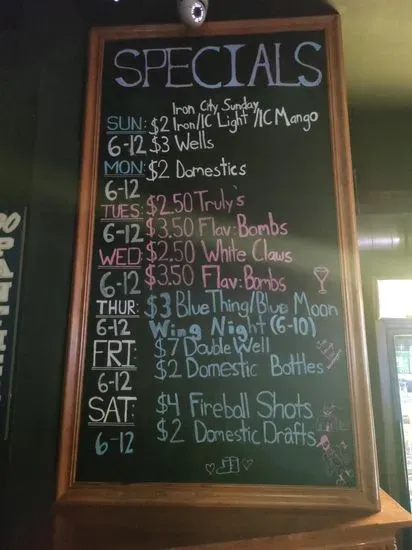 SPECIALS
Iron City Sunday
SUN: $2 Iron/IC Light/IC Mango
6-12 $3 Wells
MON: $2 Domestics
6-12
TUES: $2.50 Truly's
6-12 $3.50 Flav. Bombs
WED: $2.50 White Claws
6-12 $3.50 Flav. Bombs
THUR: $3 Blue Thing/Blue Moon
6-12 Wing Night (6-10)
FRI: $7 Double Well
6-12 $2 Domestic Bottles
SAT: $4 Fireball Shots
6-12 $2 Domestic Drafts